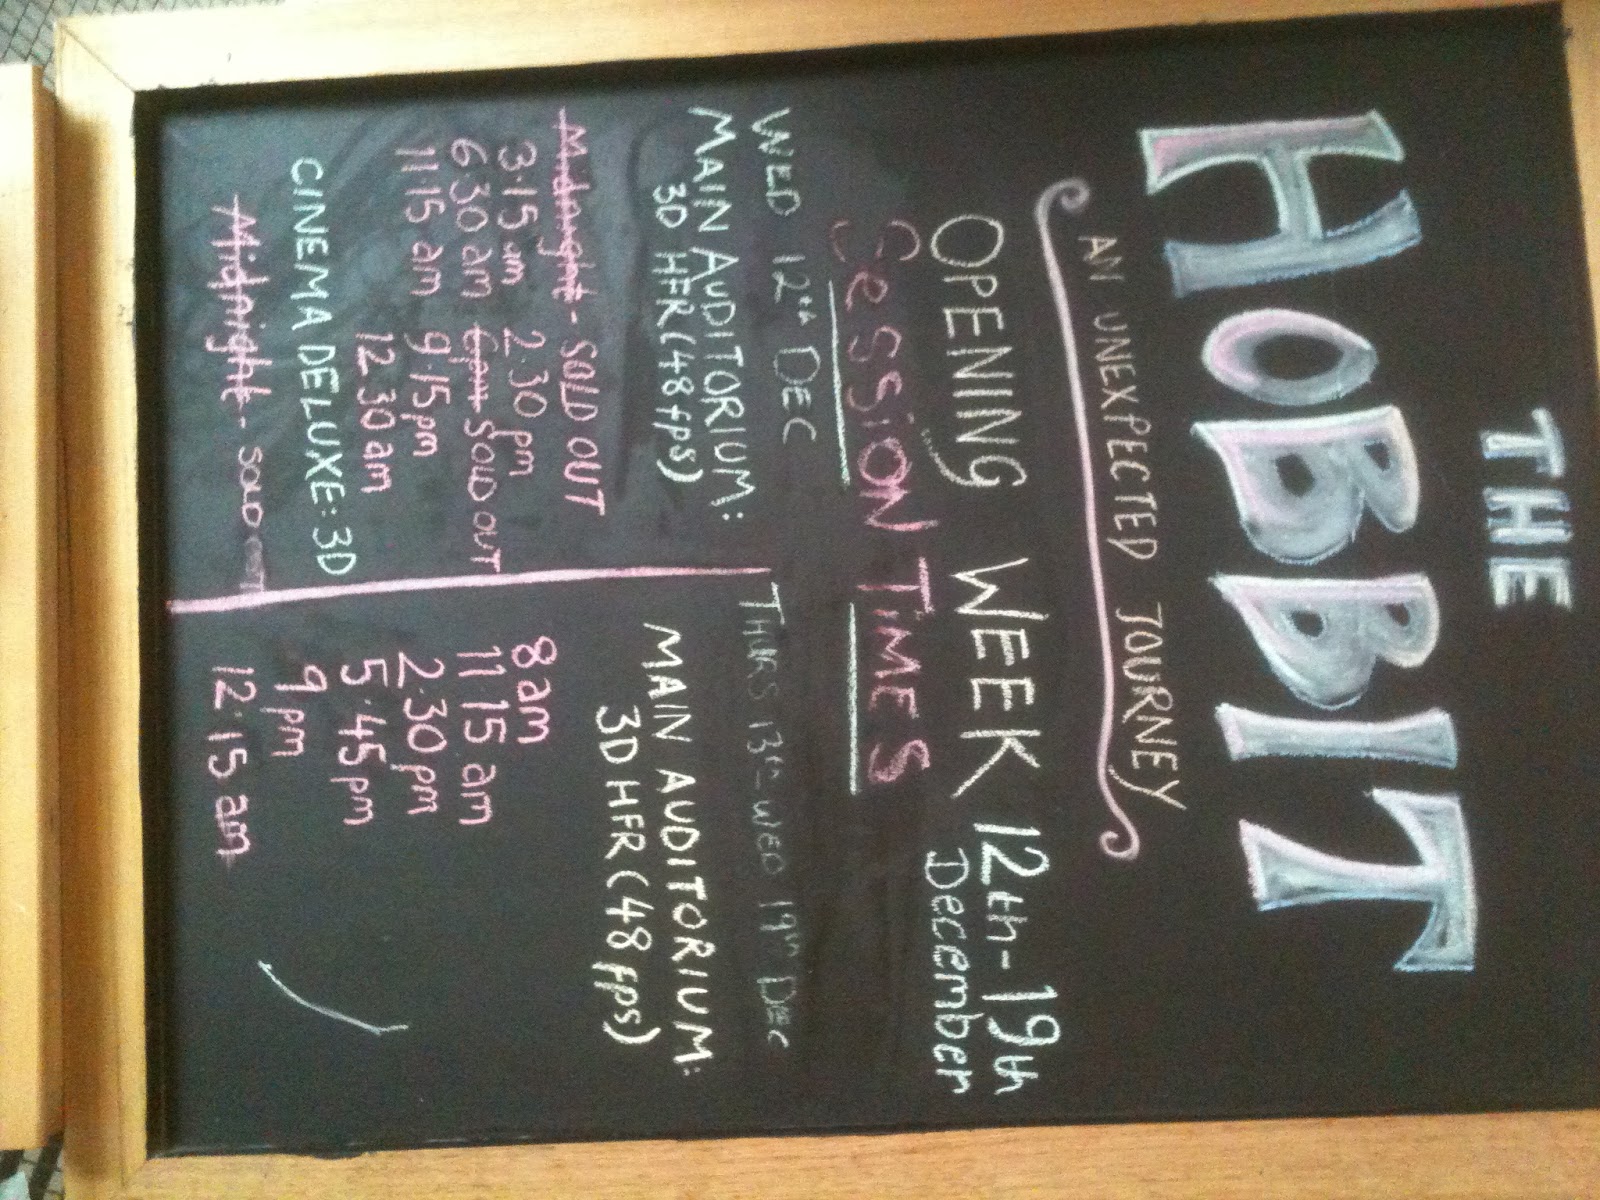 THE
HOBBIT
AN UNEXPECTED JOURNEY
OPENING WEEK 12th-19th
December
SeSSiON TiMES
WED 12th DEC
MAIN AUDITORIUM:
3D HFR (48fps)
Midnight - SOLD OUT
3.15am 2.30pm
6.30am 6pm - SOLD OUT
11.15am 9.15pm
12.30am
CINEMA DELUXE: 3D
Midnight - SOLD OUT
THURS 13th - WED 19th DEC
MAIN AUDITORIUM:
3D HFR (48 fps)
8am
11.15am
2.30pm
5.45pm
9pm
12.15am